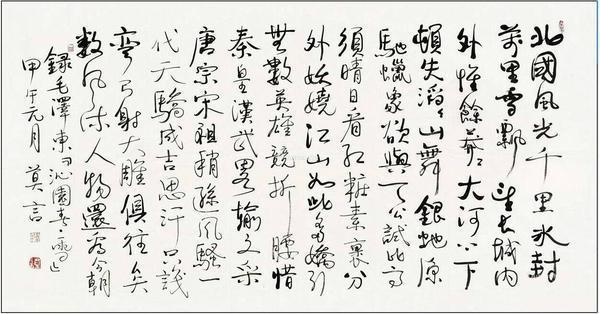 北國風光千里冰封
萬里雪飄望長城內
外惟餘莽々大河上下
頓失滔々山舞銀蛇原
馳蠟象欲與天公試比高
須晴日看紅粧素裹分
外妖嬈江山如此多嬌引
無數英雄競折腰惜
秦皇漢武畧輸文采
唐宗宋祖稍遜風騷一
代天驕成吉思汗只識
彎弓射大雕俱往矣
數風流人物還看今朝
錄毛澤東詞沁園春・雪
甲午元月 莫言